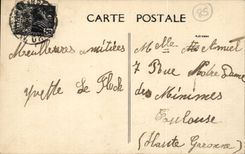 CARTE POSTALE
85
Meilleures amitiés
Yvette Le
Melle Amiel
7 Rue Notre Dame
des Minimes
Toulouse
(Haute Garonne)